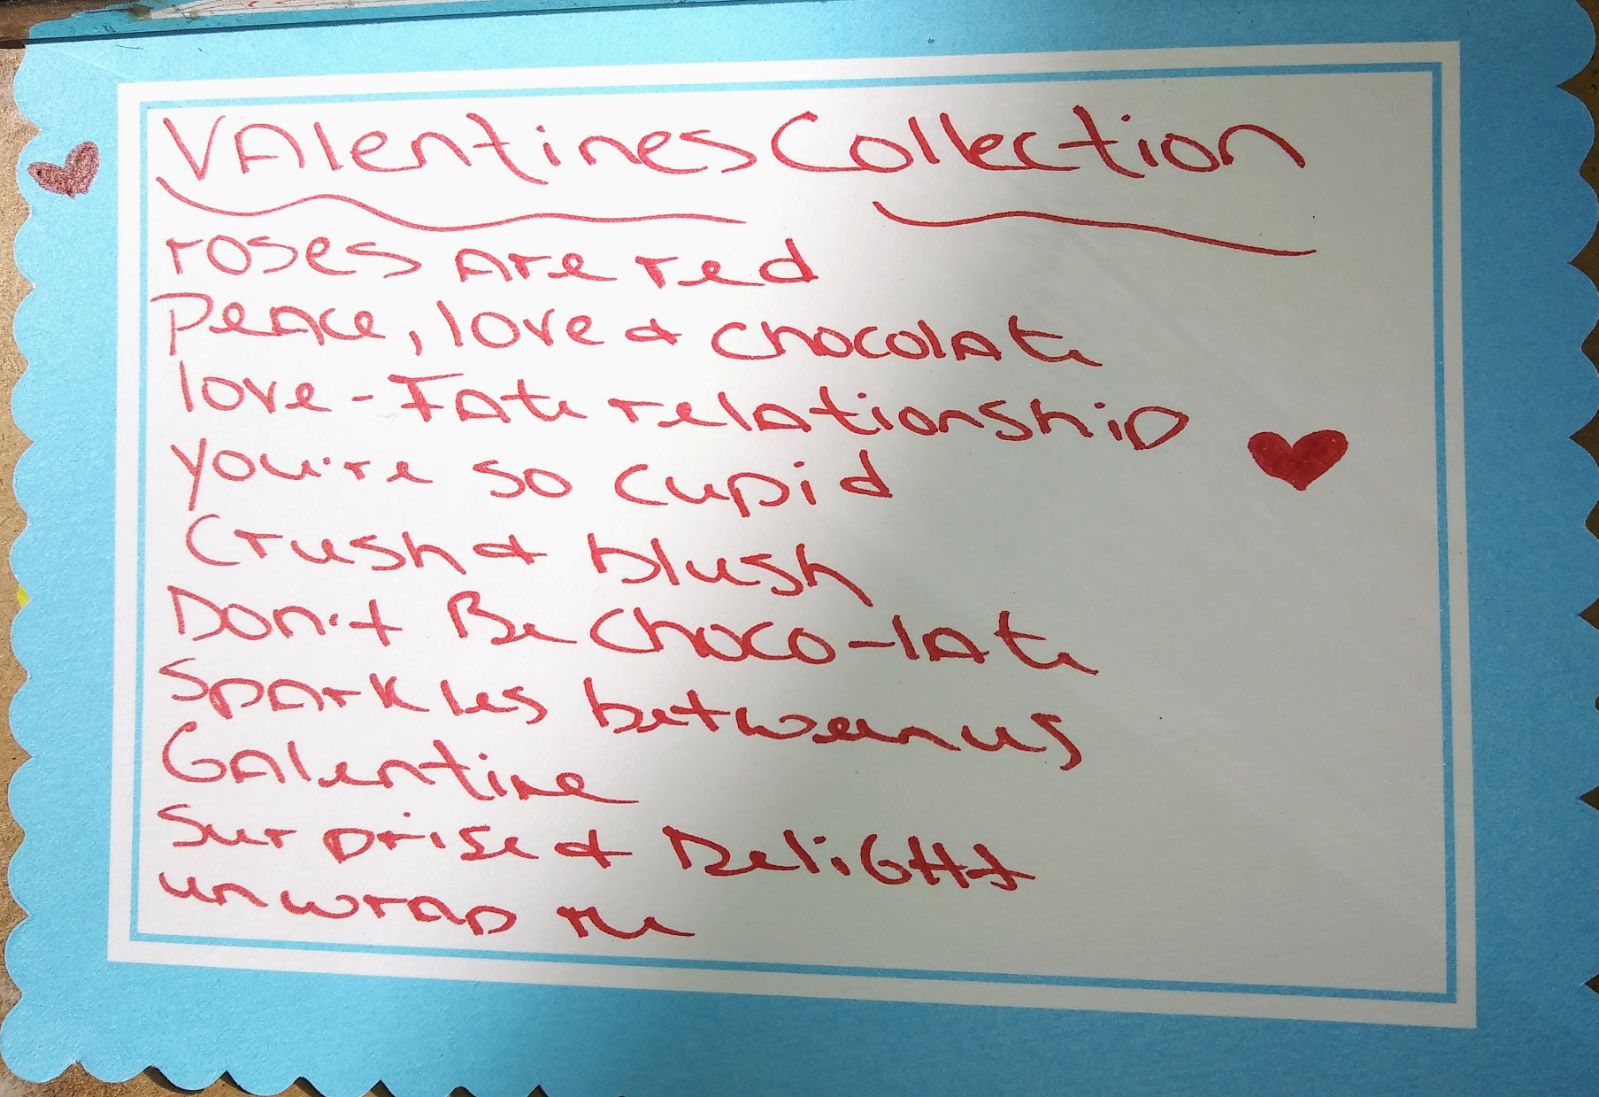 Valentines Collection
roses are red
Peace, love & chocolate
love-Fate relationship
you're so cupid
Crush & blush
Don't Be Choco-late
Sparkles between us
Galentine
Surprise & Delight
unwrap me